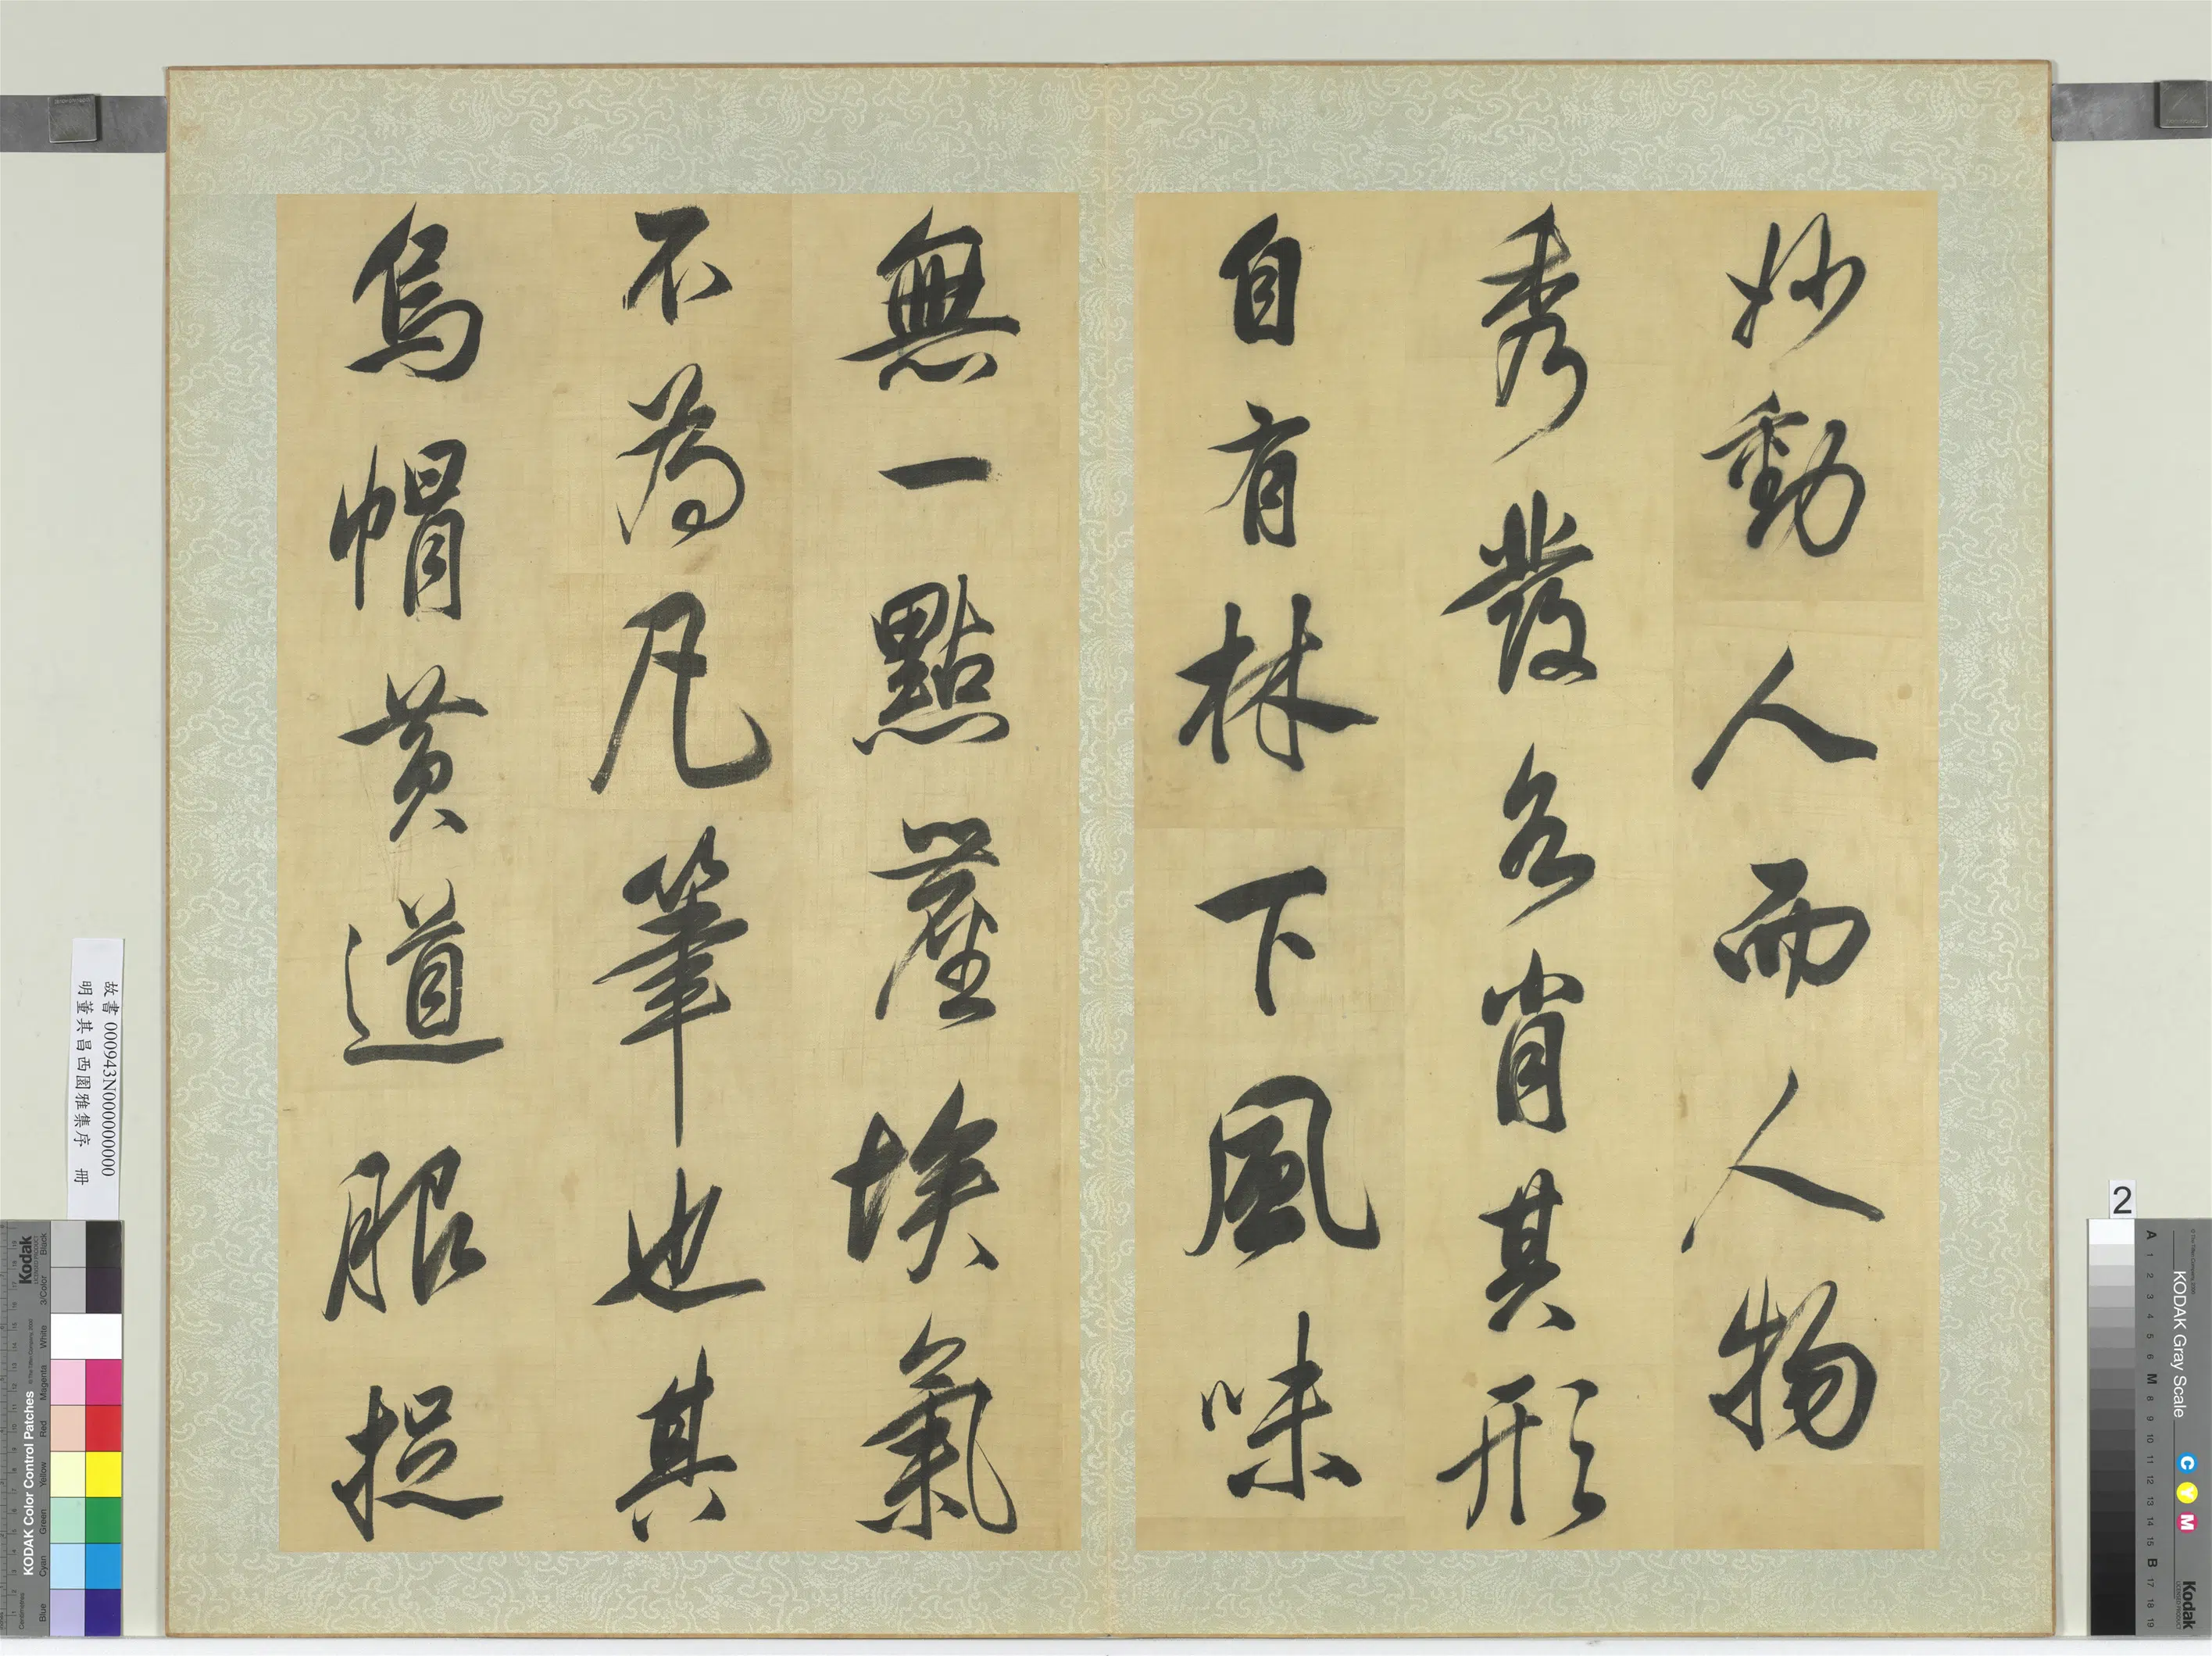 妙動人而人物
秀發各肖其形
自有林下風味
無一點塵埃氣
不為凡筆也其
烏帽黃道服捉
故書 000943N000000000
明董其昌西園雅集序 冊
2
KODAK Gray Scale
C Y M
Kodak
A 1 2 3 4 5 6 M 8 9 10 11 12 13 14 15 B 17 18 19
Kodak
KODAK Color Control Patches
Blue Cyan Green Yellow Red Magenta White 3/Color Black